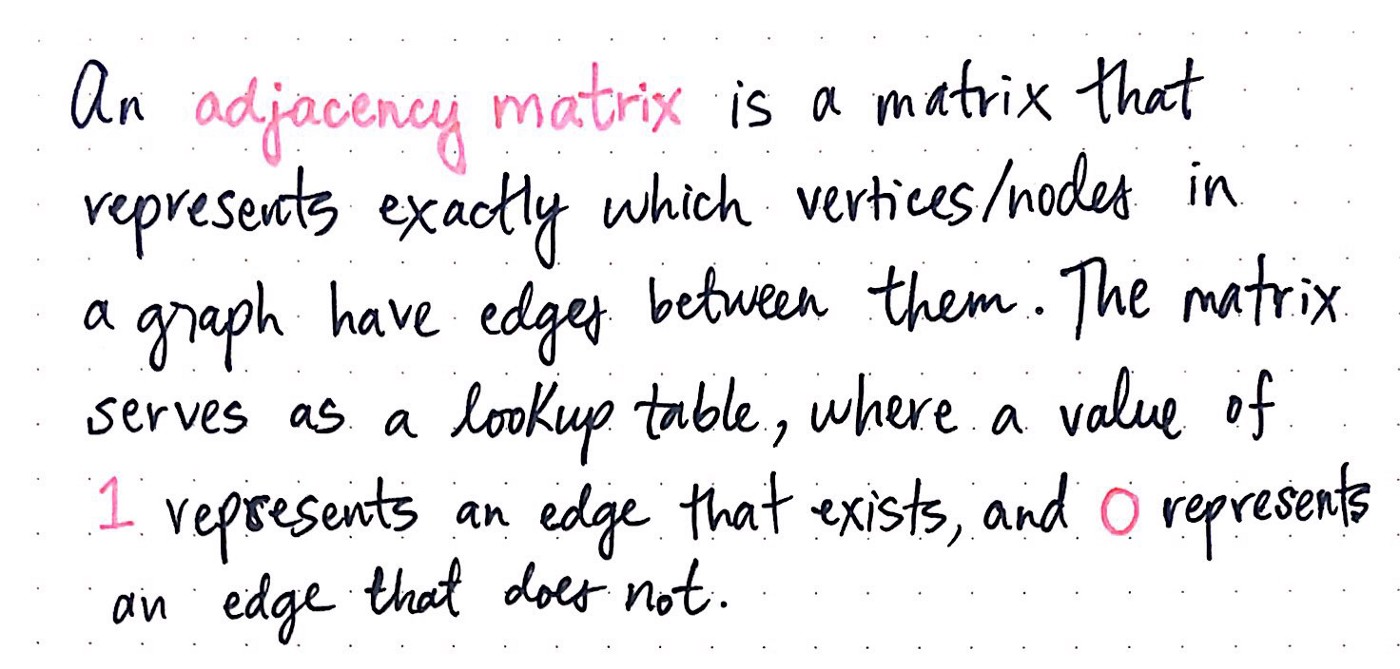 An adjacency matrix is a matrix that
represents exactly which vertices/nodes in
a graph have edges between them. The matrix
serves as a lookup table, where a value of
1 represents an edge that exists, and 0 represents
an edge that does not.